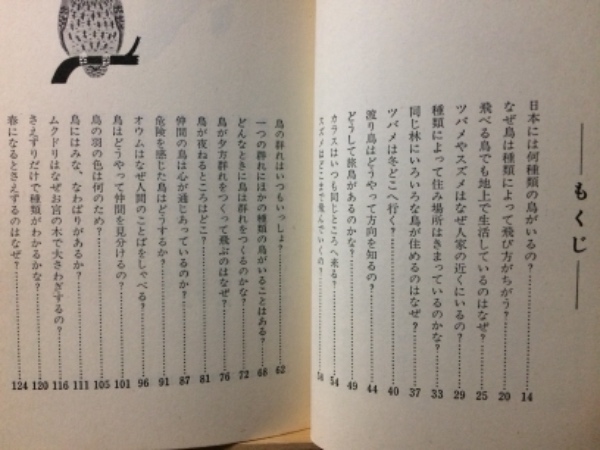 もくじ
日本には何種類の鳥がいるの？ 14
なぜ鳥は種類によって飛び方がちがう？ 20
飛べる鳥でも地上で生活しているのはなぜ？ 25
ツバメやスズメはなぜ人家の近くにいるの？ 29
種類によって住み場所はきまっているのかな？ 33
同じ林にいろいろな鳥が住めるのはなぜ？ 37
ツバメは冬どこへ行く？ 40
渡り鳥はどうやって方向を知るの？ 44
どうして旅鳥があるのかな？ 49
カラスはいつも同じところへ来る？ 54
スズメはどこまで飛んでいくの？ 58
鳥の群れはいつもいっしょ？ 62
一つの群れにほかの種類の鳥がいることはある？ 68
どんなときに鳥は群れをつくるのかな？ 72
鳥が夕方群れをつくって飛ぶのはなぜ？ 76
鳥が夜ねるところはどこ？ 81
仲間の鳥は心が通じあっているのか？ 87
危険を感じた鳥はどうするか？ 91
オウムはなぜ人間のことばをしゃべる？ 96
鳥はどうやって仲間を見分けるの？ 101
鳥の羽の色は何のため？ 105
鳥にはみな、なわばりがあるか？ 111
ムクドリはなぜお宮の木で大さわぎするの？ 116
さえずりだけで種類がわかるかな？ 120
春になるとさえずるのはなぜ？ 124